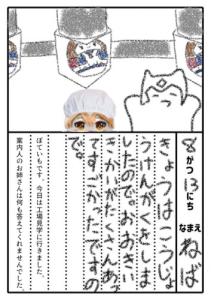 8がつ13にち
なまえ ねば
きょうはこうじょ
うけんがくをしま
したので。おおきい
きかいがたくさんあっ
てすごかったですの
で。
ぽていもです。今日は工場見学に行きました。
案内人のお姉さんは何も答えてくれませんでした。